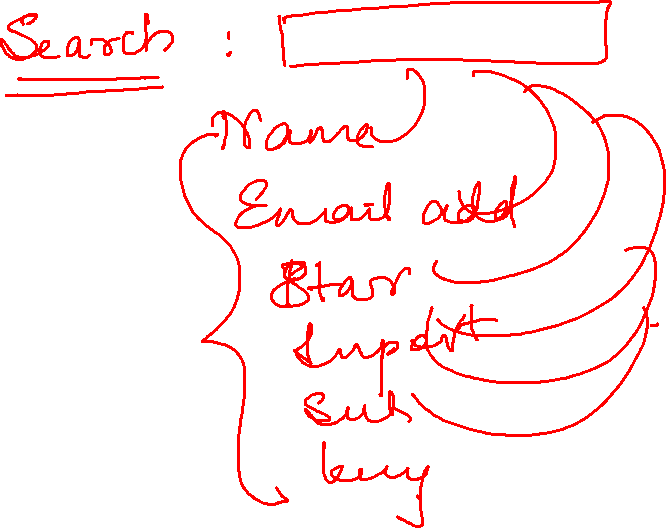 Search :
Name
Email add
Star
Import
Sub
key